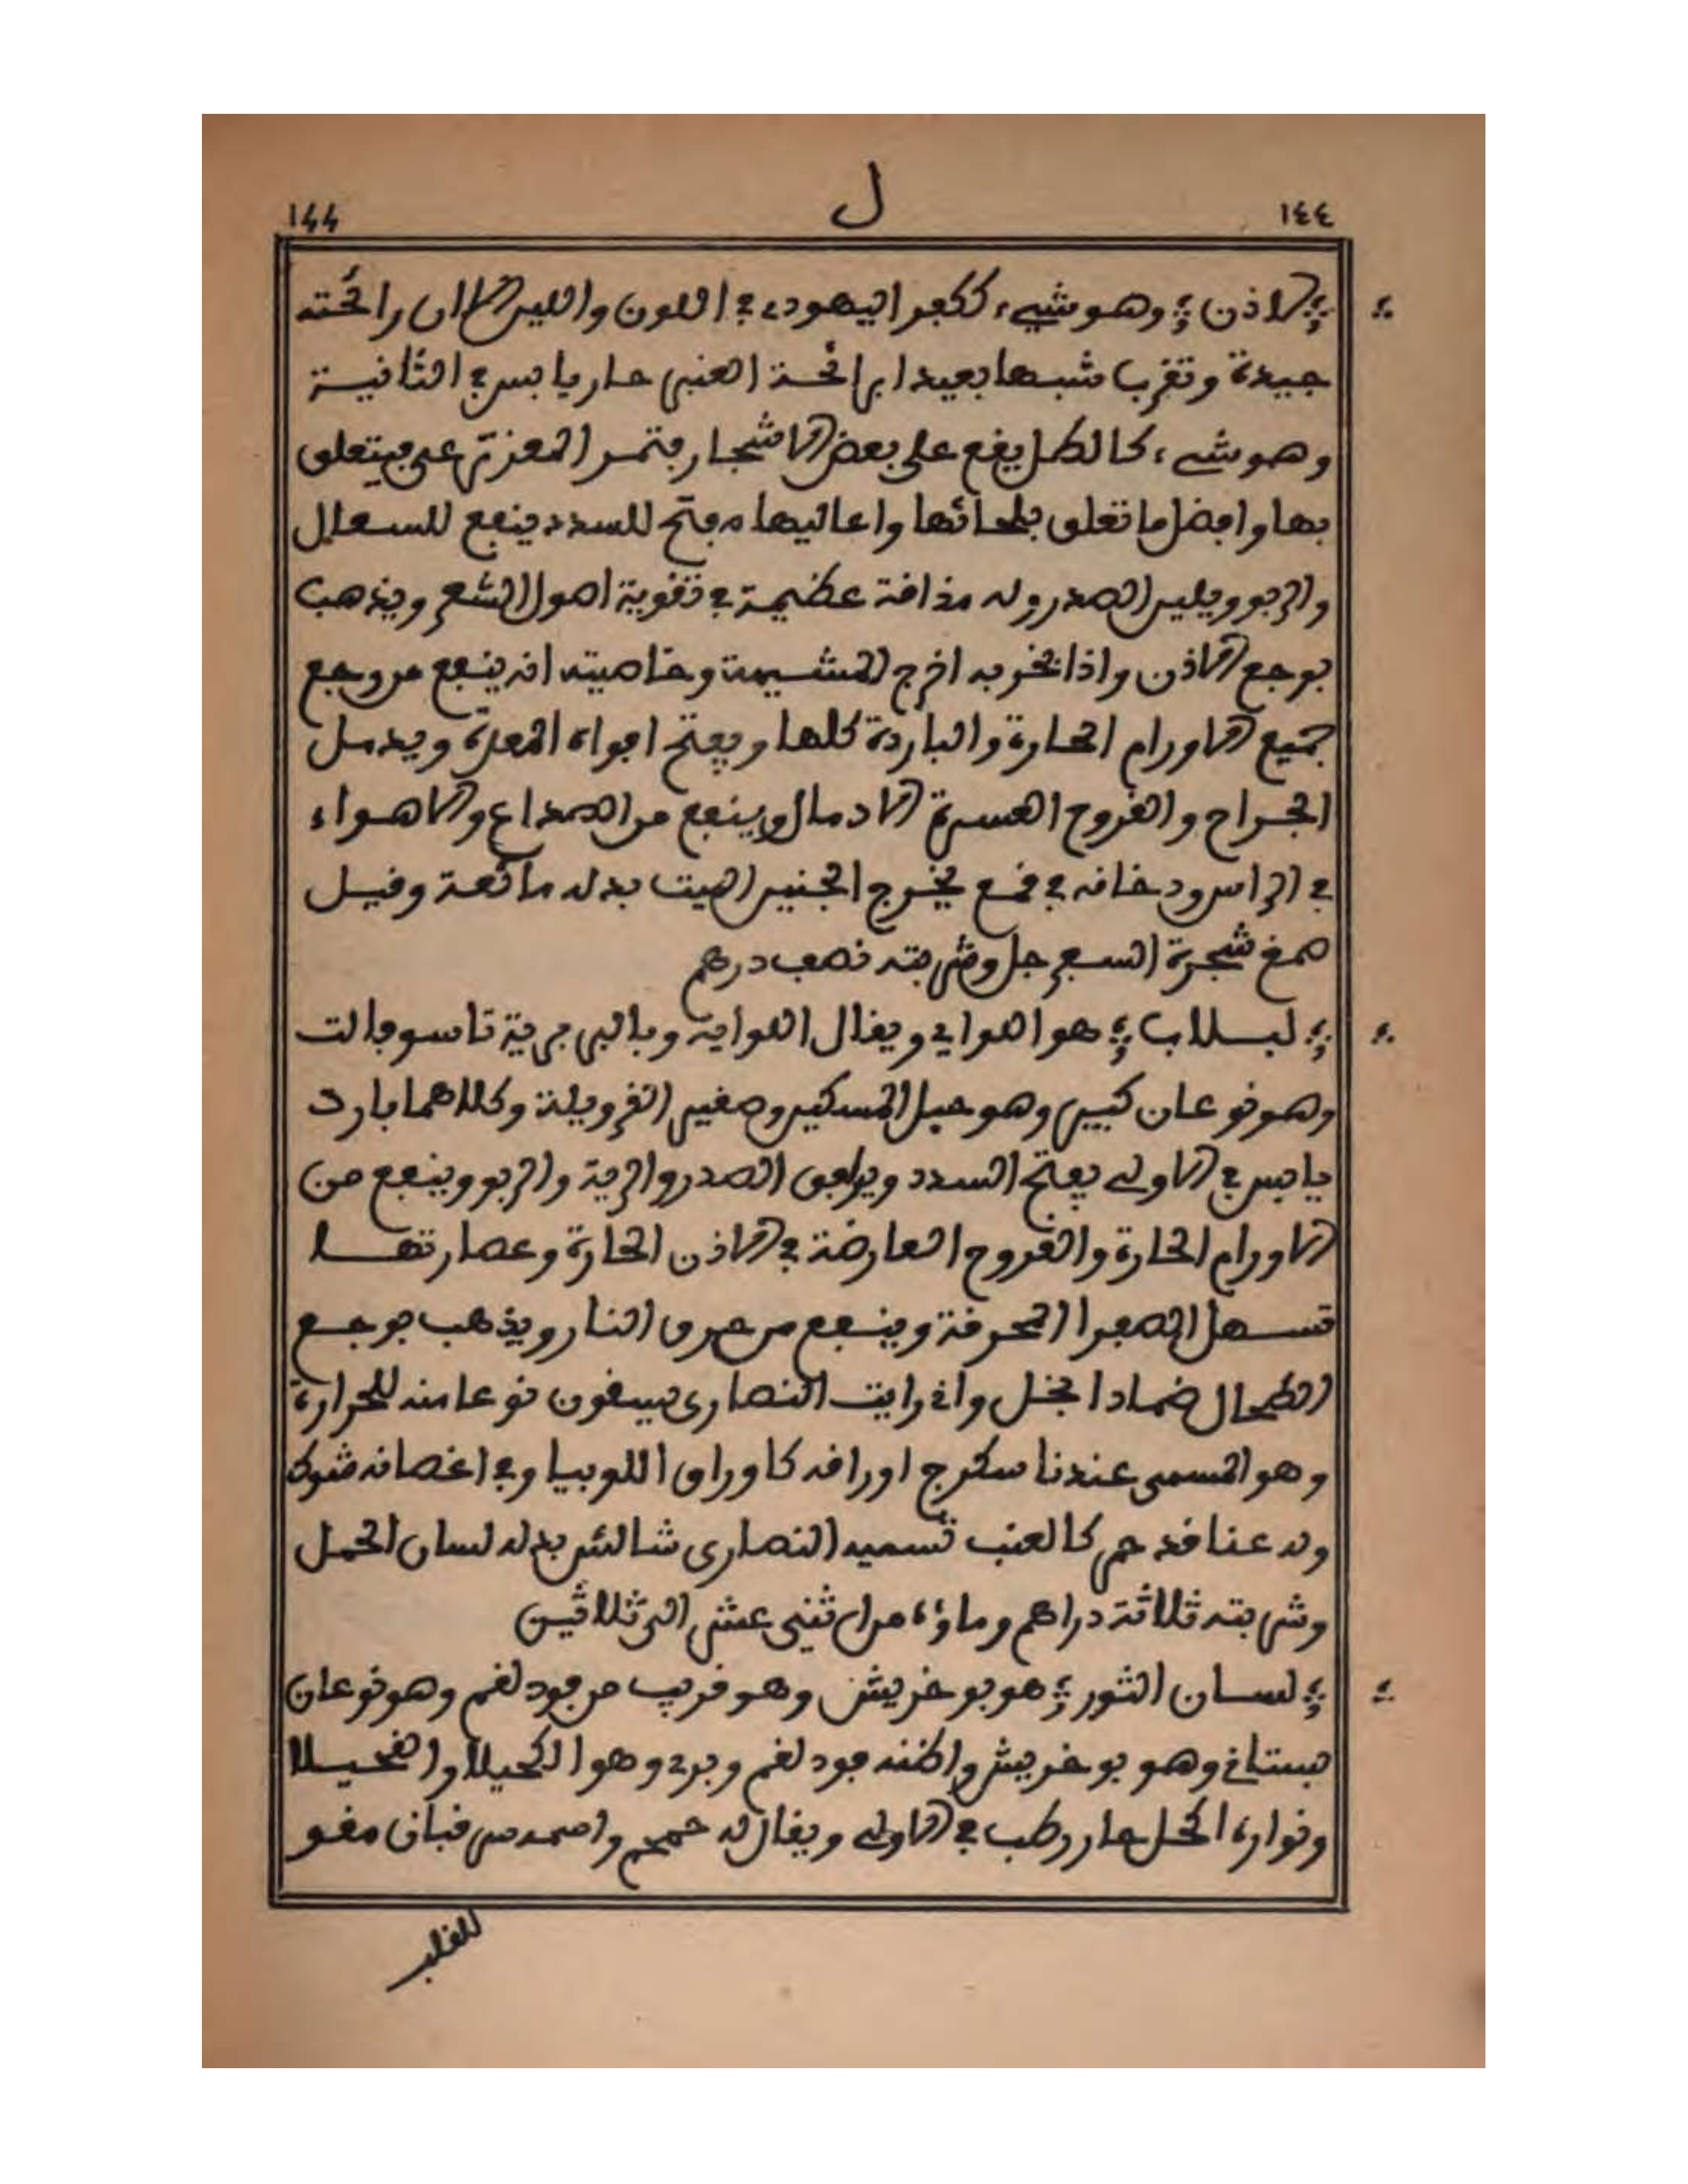 ١٤٤ ل 144
؞ لاذن ؞ وهو شيء ككفر اليهودي في اللون واللين الا ان رائحته
جيدة وتقرب شبها بعيدا برائحة العنبر حار يابس في الثانية
وهو شيء كالطل يقع على بعض الاشجار فتمر المعز ترعى فيتعلق
بها وافضل ما تعلق بلحائها واعاليها مفتح للسدد ينفع للسعال
والربو ويلين الصدر وله مذاقة عظيمة في تقوية اصول الشعر ويذهب
بوجع الاذن واذا بخر به اخرج المشيمة وخاصيته انه ينفع من وجع
جميع الاورام الحارة والباردة كلها ويفتح افواه المعدة ويدمل
الجراح والقروح العسرة الادمال وينفع من الصداع والاهواء
في الراس ودخانه في قمع يخرج الجنين الميت بدله مائعة وقيل
صمغ شجرة السفرجل وشربته نصف درهم
؞ لبلاب ؞ هو اللواي ويقال اللواية وبالبربرية تاسوفالت
وهو نوعان كبير وهو حبل المسكين وصغير القريولة وكلاهما بارد
يابس في الاولى يفتح السدد ويوافق الصدر والرية والربو وينفع من
الاورام الحارة والقروح العارضة في الاذن الحارة وعصارتها
تسهل الصفرا المحرقة وينفع من حرق النار ويذهب بوجع
الطحال ضمادا بخل واني رايت النصارى يسقون نوعا منه للحرارة
وهو المسمى عندنا سكرج اوراقه كاوراق اللوبيا وفي اغصانه شوك
وله عناقد حمر كالعنب تسميه النصارى شالش بدله لسان الحمل
وشربته ثلاثة دراهم وماؤه من اثني عشر الى ثلاثين
؞ لسان الثور ؞ هو بو خريش وهو قريب من فود لغم وهو نوعان
بستاني وهو بو خريش واظنه فود لغم وبري وهو الكحيلا والفحيلا
ونواره اكحل حار رطب في الاولى ويقال له حمحم فباني مقو
للقلب